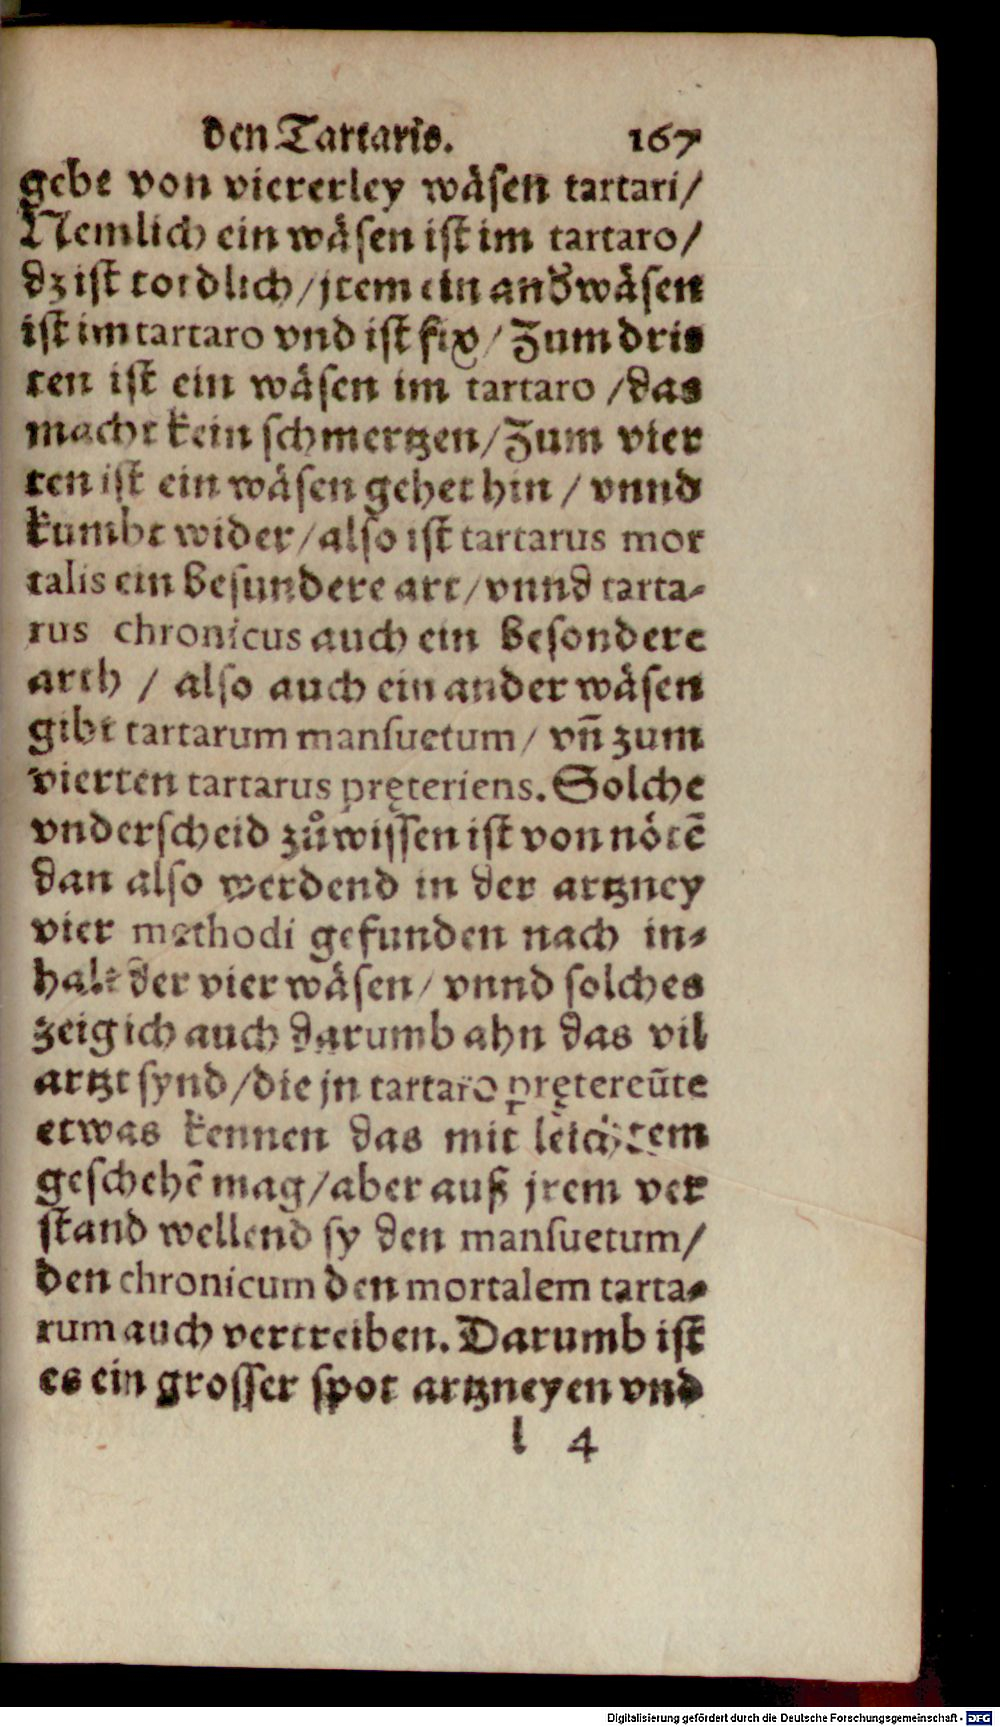 den Tartaris. 167
gebe von viererley wäsen tartari/
Nemlich ein wäsen ist im tartaro/
dz ist tordlich/jtem ein and̛ wäsen
ist im tartaro vnd ist fix/Zum drit⸗
ten ist ein wäsen im tartaro /das
macht kein schmertzen/Zum vier
ten ist ein wäsen gehet hin / vnnd
kumbt wider/also ist tartarus mor
talis ein besundere art/vnnd tarta⸗
rus chronicus auch ein besondere
arth / also auch ein ander wäsen
gibt tartarum mansuetum/ vñ zum
vierten tartarus pręteriens. Solche
vnderscheid zůwissen ist von nötē
dan also werdend in der artzney
vier methodi gefunden nach in⸗
halt der vier wäsen/ vnnd solches
zeig ich auch darumb ahn das vil
artzt synd/die jn tartaro prętereūte
etwas kennen das mit leichtem
geschehē mag/aber auß jrem ver
stand wellend sy den mansuetum/
den chronicum den mortalem tarta⸗
rum auch vertreiben. Darumb ist
es ein grosser spot artzneyen vnd
l 4
Digitalisierung gefördert durch die Deutsche Forschungsgemeinschaft - DFG